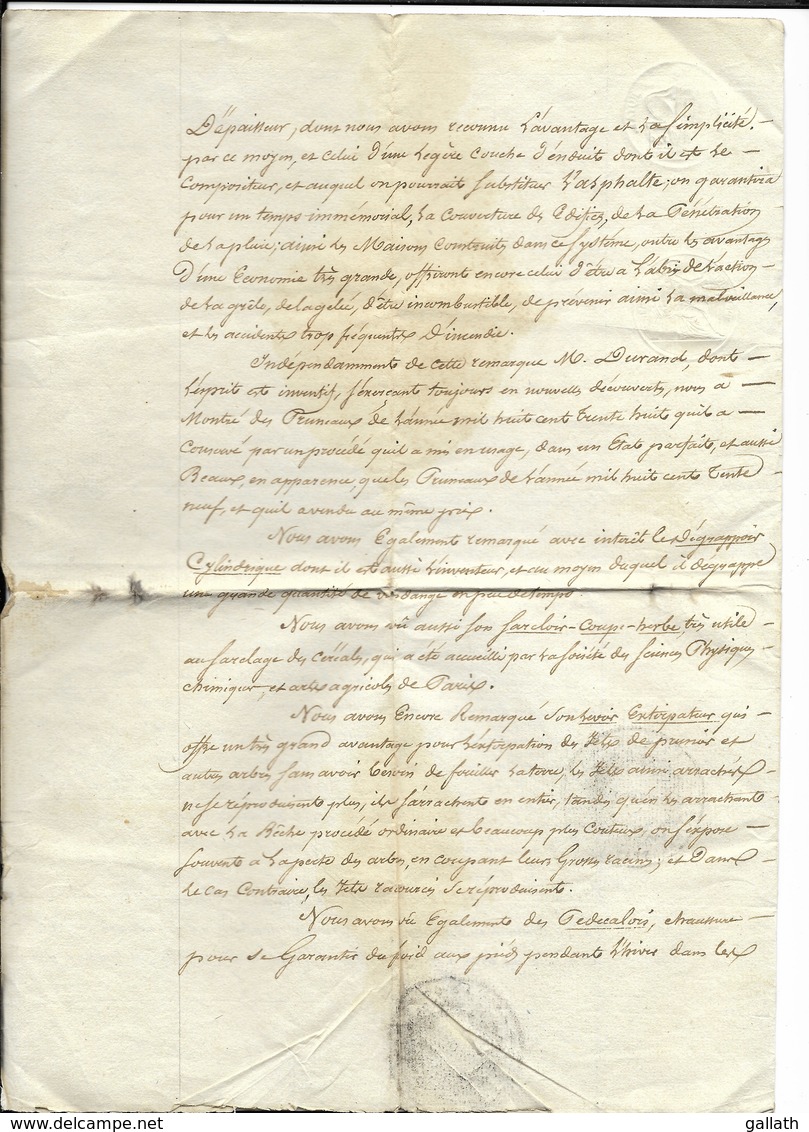 D'épaisseur, dont nous avons reconnu l'avantage et la Simplicité.
par ce moyen, et celui d'une legère couche d'énduit dont il est le —
Compositeur, et auquel on pourrait Substituer l'asphalte; on garantira
pour un temps immémorial, la Couverture des Edifices, de la Pénétration
de la pluie; ainsi les Maisons Construites dans ce Systéme, outre les avantages
D'une Economie très grande, offriront encore celui d'être a l'abri de l'action —
de la grêle, de la gelée, d'être incombustible, de prévenir ainsi la malveillance,
et les accidents trop fréquents D'incendie.
Indépendamments de cette remarque M. Durand, dont —
l'ésprit est inventif, s'éxerçant toujours en nouvelles découverts, nous a —
Montré des Pruneaux de l'année mil huit cent trente huit qu'il a —
Conservé par un procédé qu'il a mis en usage, dans un Etat parfait, et aussi
Beaux, en apparence, que les Pruneaux de l'année mil huit cents trente
neuf, et qu'il a vendu au même prix.
Nous avons Egalement remarqué avec intérêt le Dégrappoir
Cylindrique dont il est aussi l'inventeur, et au moyen duquel il dégrappe
une grande quantité de vendange en peu de temps.
Nous avons vû aussi son Sarcloir-Coupe-herbe, très utile —
au Sarclage des Céréals, qui a été accueilli par la Société des Sciences Physiques
chimique, et arts agricoles de Paris.
Nous avons Encore Remarqué Son levier Extirpateur qui —
offre un très grand avantage pour l'éxtirpation des Jets de prunier et
autres arbres Sans avoir besoin de fouiller la terre, les Jets ainsi arrachés —
ne se réproduisent plus, ils s'arrachent en entier, tandis qu'en les arrachant
avec la Bêche procédé ordinaire et beaucoup plus Couteux, on s'expose —
Souvent a la perte des arbres, en coupant leurs Grosses racines; et Dans —
le cas Contraire, les Jets racourcis se réproduisent.
Nous avons vû Egalements des Pedecalois, chaussure —
pour se Garantir du froid aux pieds pendant l'hiver dans les
gallath